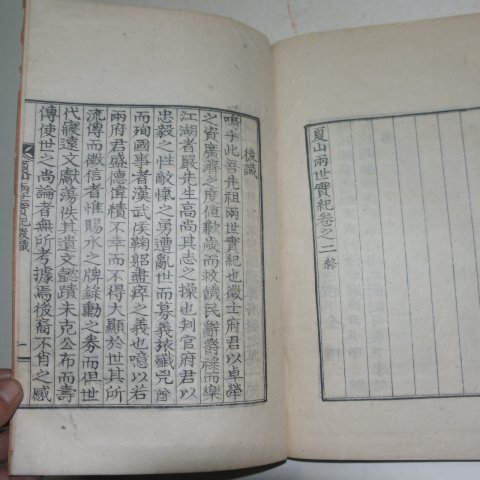 夏山兩世實紀卷之二 終
後識
嗚乎此吾先祖兩世實紀也徵士府君以卓犖
之資廣濟之度値歉歲而救饑民辭爵祿而樂
江湖者嚴先生高尚其志之操也判官府君以
忠毅之性敵愾之勇遭亂世而募義旅殲兇酋
而殉國事者漢武侯鞠躬盡瘁之義也噫以若
兩府君盛德偉績不幸而不得大顯於世其所
流傳而徵信者惟賜水之牌錄勳之券而但世
代寢遠文獻蕩佚其遺文懿蹟未克公布而壽
傳使世之尚論者無所考據焉後裔不肖之感
世實紀後識
一